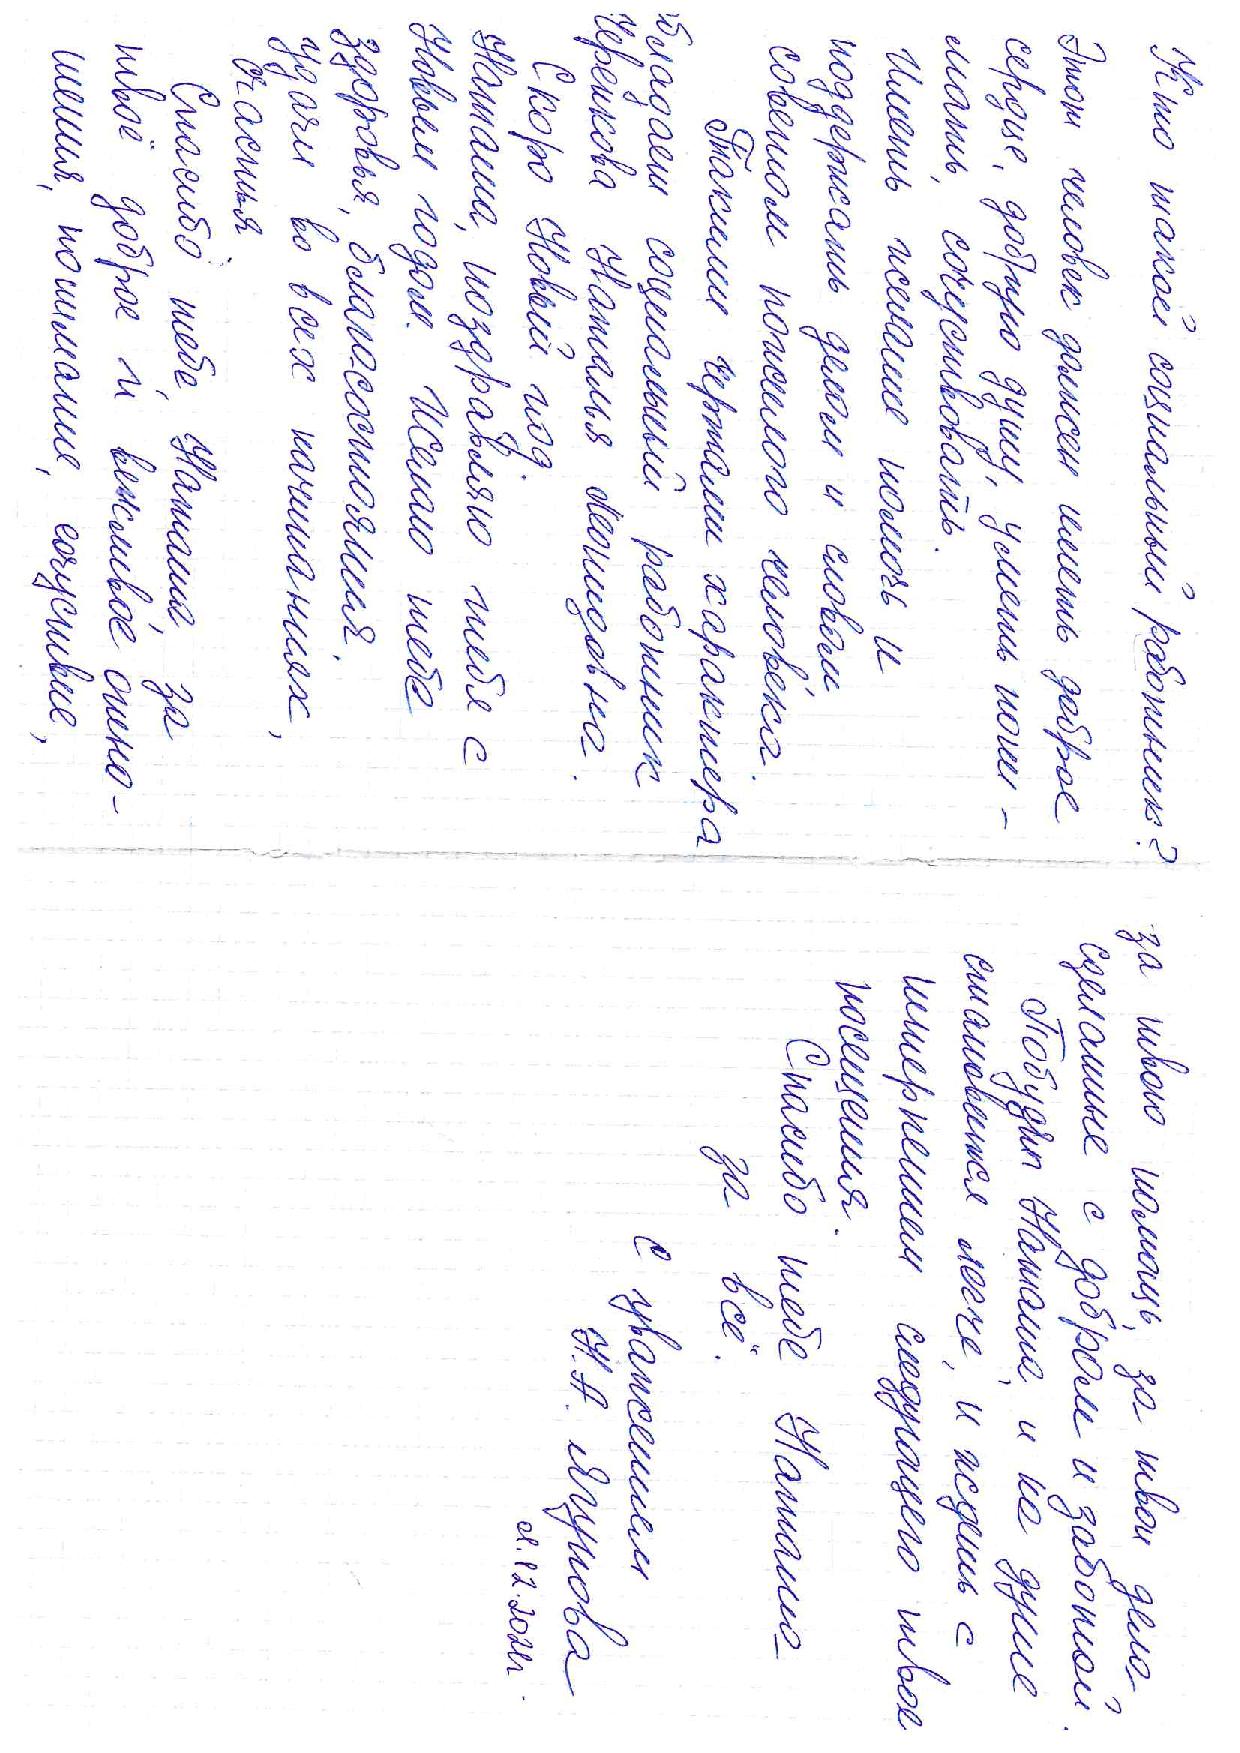 Кто такой социальный работник?
Этот человек должен иметь доброе
сердце, добрую душу, уметь пони-
мать, сочуствовать.
Иметь желание помочь и
поддержать делом и словом
советом пожилого человека.
Такими чертами характера
обладает социальный работник
Черенкова Наталья Леонидовна.
Скоро Новый год.
Наташа, поздравляю тебя с
Новым годом. Желаю тебе
здоровья, благосостояния,
удачи во всех начинаниях,
счастья.
Спасибо тебе, Наташа, за
твоё доброе и вежливое отно-
шения, понимание, сочуствие,
за твою помощь, за твои дела-
сделанные с добром и заботой.
Побудет Наташа, и на душе
становится легче, и ждешь с
нетерпением следующего твоего
посещения.
Спасибо тебе Наташа-
за всё.
С уважением
Н.А. Ягунова
12.2021г.